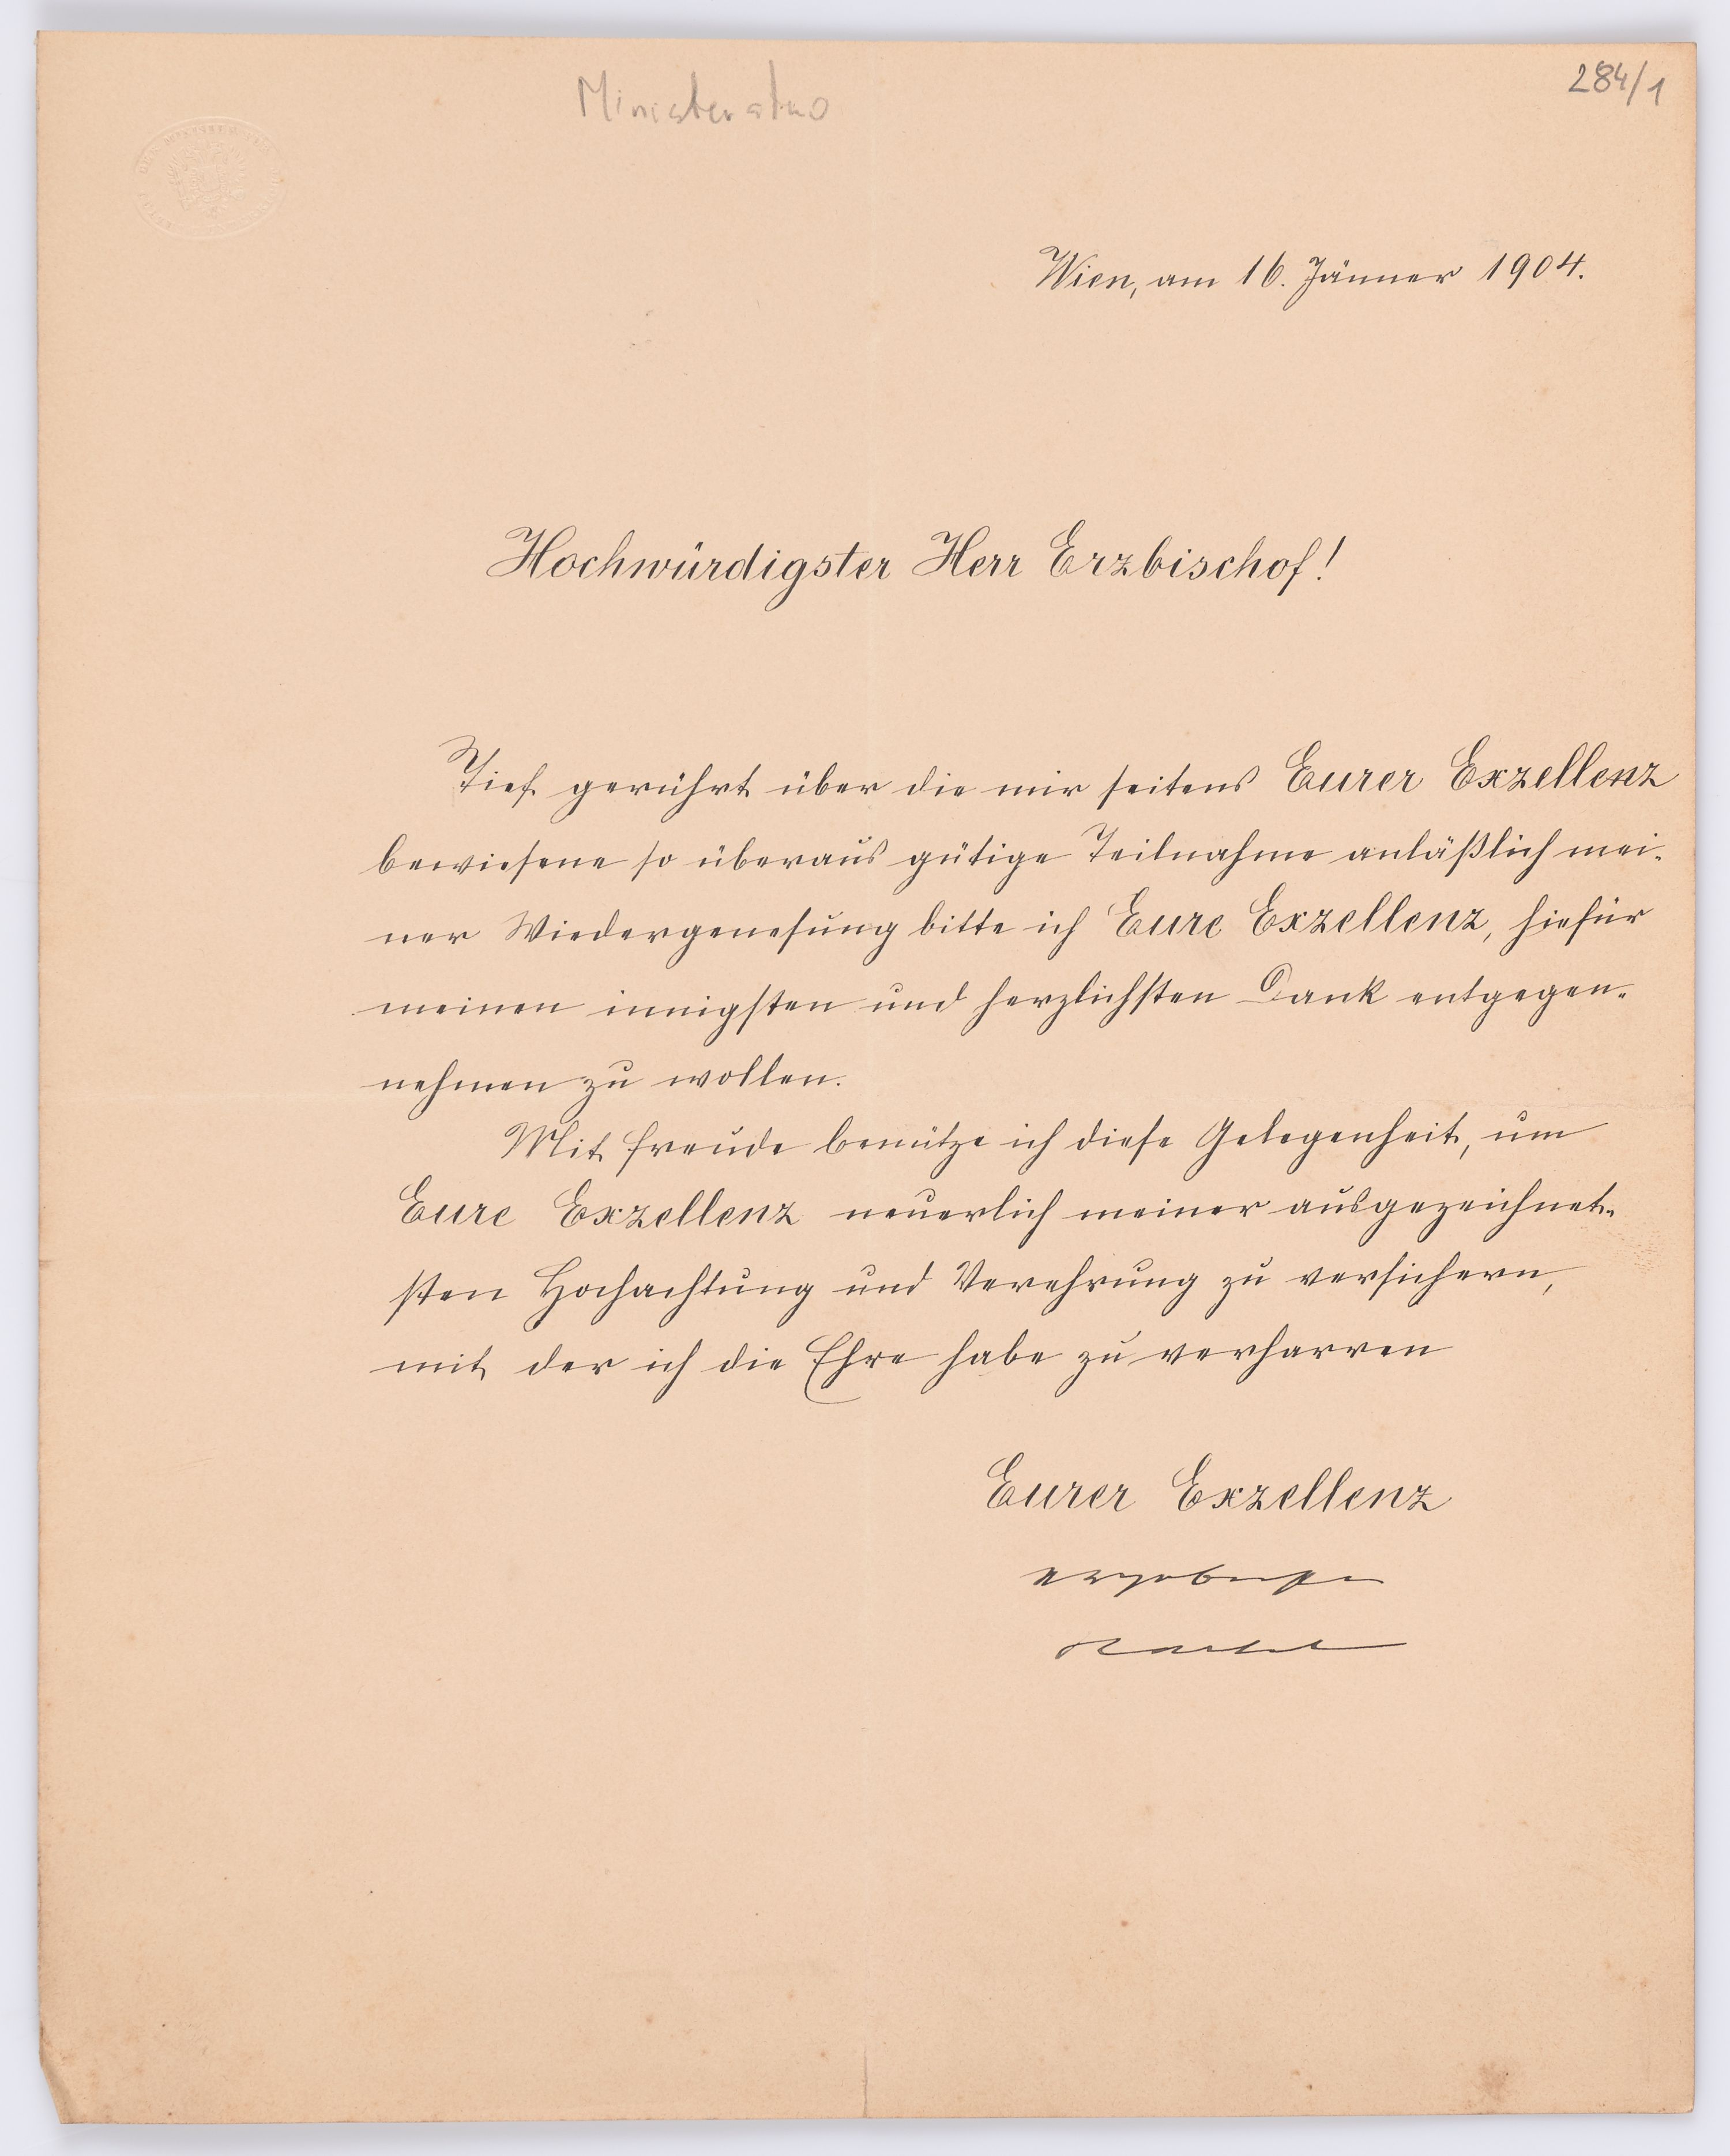 284/1
Wien, am 16. Jänner 1904.
Hochwürdigster Herr Erzbischof!
Tief gerührt über die mir seitens Eurer Exzellenz
bewiesene so überaus gütige Teilnahme anläßlich mei-
ner Wiedergenesung bitte ich Eure Exzellenz, hiefür
meinen innigsten und herzlichsten Dank entgegen-
nehmen zu wollen.
Mit Freude benütze ich diese Gelegenheit, um
Eure Exzellenz neuerlich meiner ausgezeichnet-
sten Hochachtung und Verehrung zu versichern,
mit der ich die Ehre habe zu verharren
Eurer Exzellenz